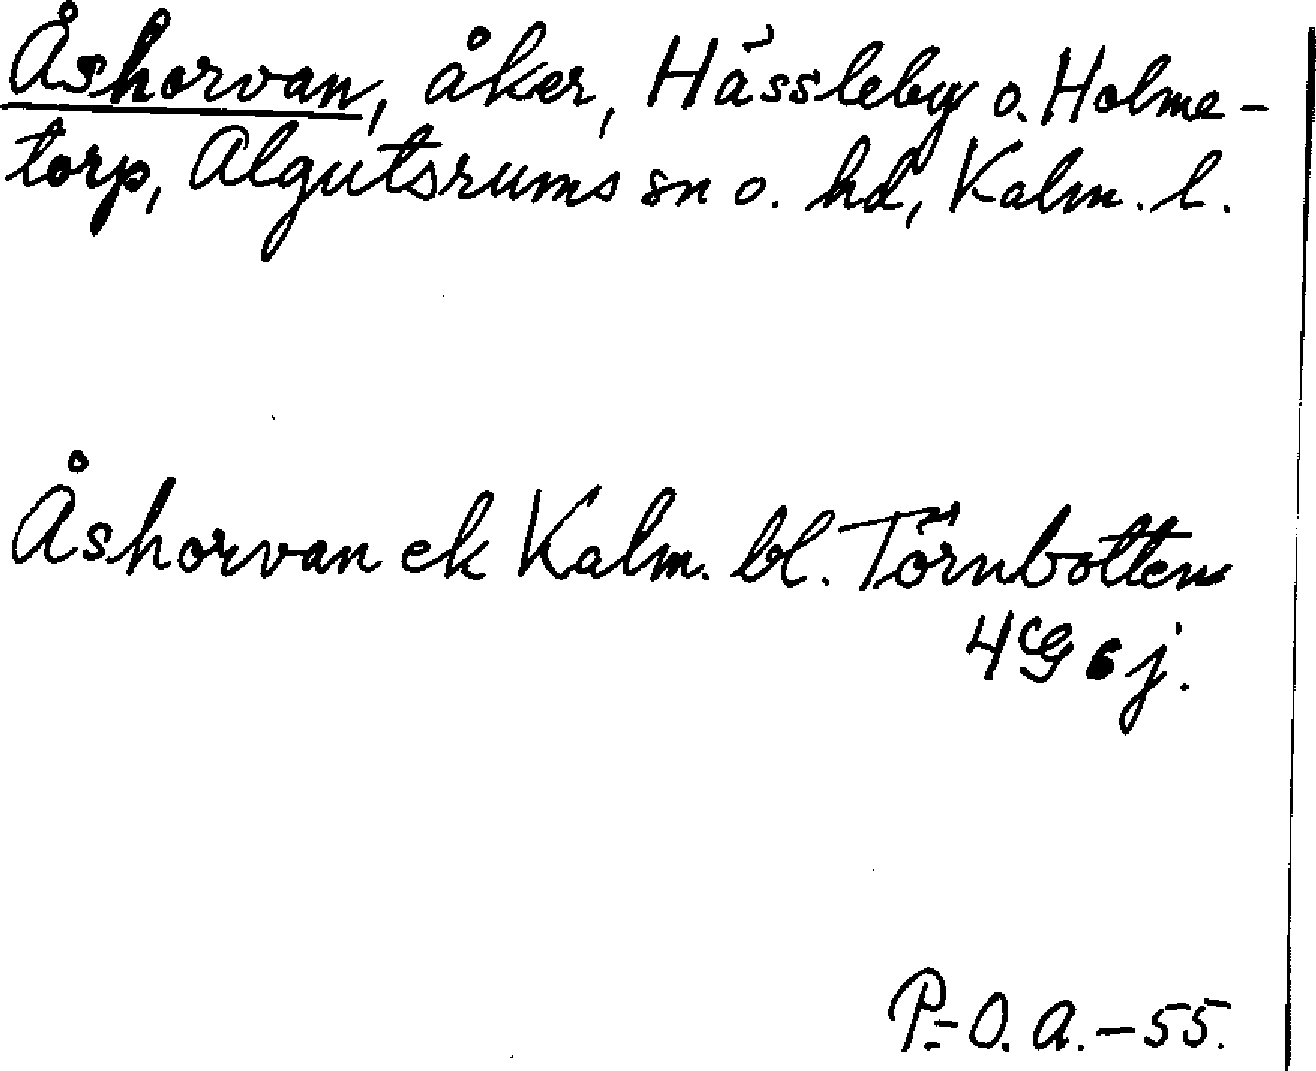 Åshorvan, åker, Hässleby o. Holme-
torp, Algutsrums sn o. hd, Kalm. l.
Åshorvan ek Kalm. bl. Törnbotten
4 G s j.
P.-O. A. – 55.